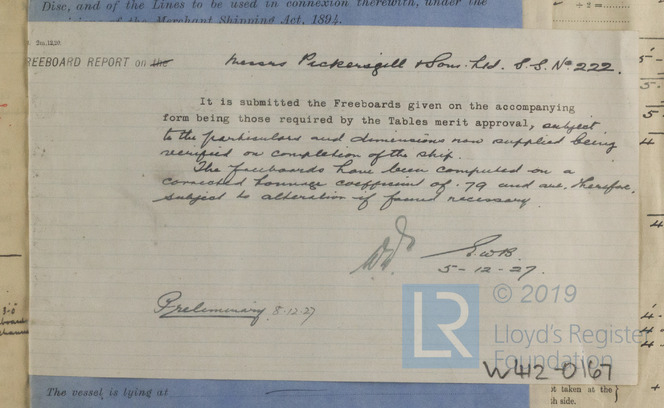 Disc, and of the Lines to be used in connexion therewith, under the
of the Merchant Shipping Act, 1894.
÷ 2 =
REEBOARD REPORT on the Messrs Pickersgill & Sons Ltd. S.S. No 222.
It is submitted the Freeboards given on the accompanying
form being those required by the Tables merit approval, subject
to the particulars and dimensions now supplied being
verified on completion of the ship.
The freeboards have been computed on a
corrected tonnage coefficient of .79 and are, therefore,
subject to alteration if found necessary.
E.W.B.
5-12-27.
Preliminary 8-12-27
LR
© 2019
Lloyd's Register
Foundation
W412-0167
The vessel is lying at
taken at the
side.